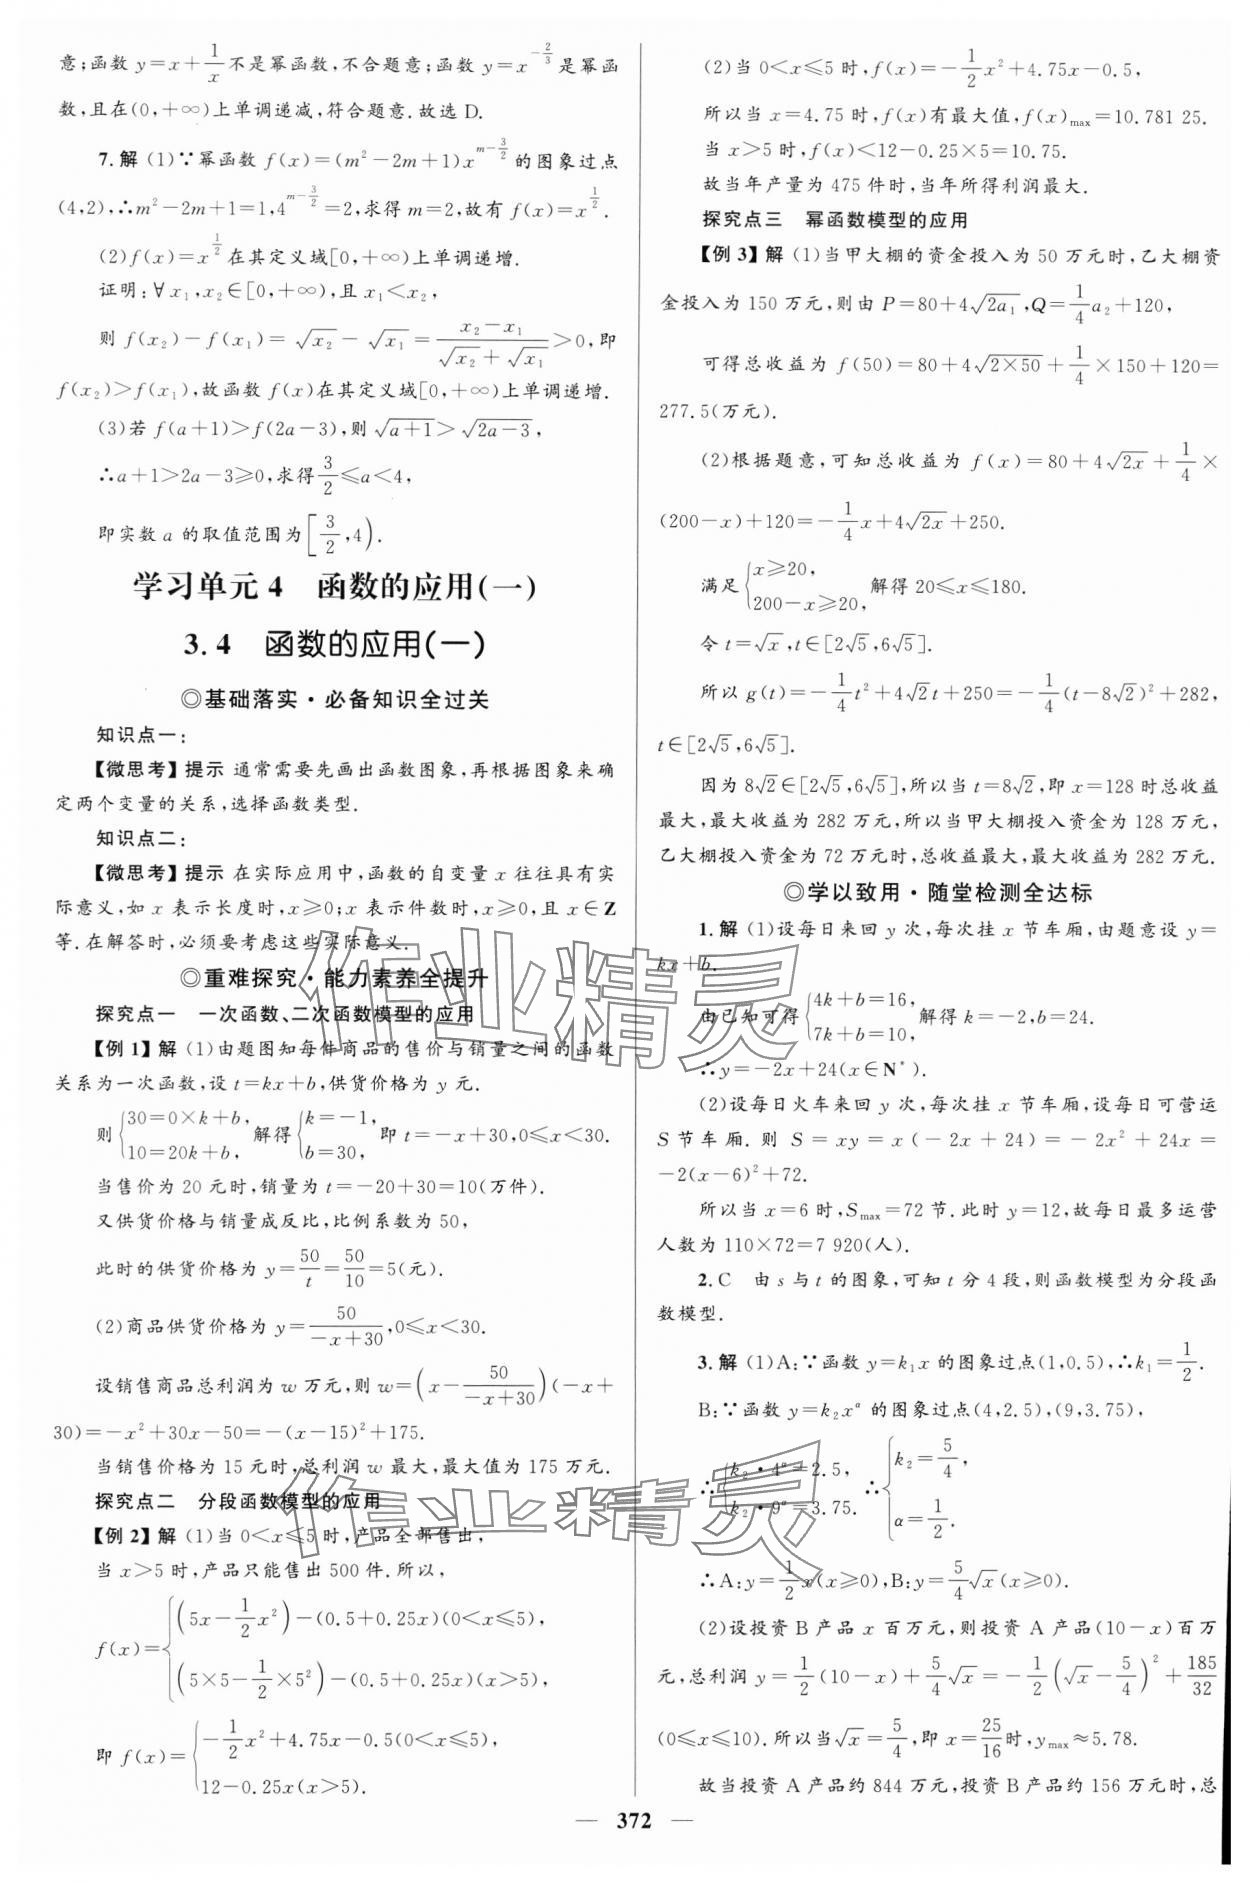 意;函数 y=x+1/x 不是幂函数,不合题意;函数 y=x^(-2/3) 是幂函
数,且在(0,+∞)上单调递减,符合题意.故选 D.
7.解 (1)∵幂函数 f(x)=(m²-2m+1)x^(m-3/2) 的图象过点
(4,2),∴m²-2m+1=1,4^(m-3/2)=2,求得 m=2,故有 f(x)=x^(1/2).
(2)f(x)=x^(1/2)在其定义域[0,+∞)上单调递增.
证明:∀x₁,x₂∈[0,+∞),且 x₁<x₂,
则 f(x₂)-f(x₁)=√x₂-√x₁=(x₂-x₁)/(√x₂+√x₁)>0,即
f(x₂)>f(x₁),故函数 f(x)在其定义域[0,+∞)上单调递增.
(3)若 f(a+1)>f(2a-3),则√(a+1)>√(2a-3),
∴a+1>2a-3≥0,求得3/2≤a<4,
即实数 a 的取值范围为[3/2,4).
学习单元4 函数的应用(一)
3.4 函数的应用(一)
◎基础落实·必备知识全过关
知识点一:
【微思考】提示 通常需要先画出函数图象,再根据图象来确
定两个变量的关系,选择函数类型.
知识点二:
【微思考】提示 在实际应用中,函数的自变量 x 往往具有实
际意义,如 x 表示长度时,x≥0;x 表示件数时,x≥0,且 x∈Z
等.在解答时,必须要考虑这些实际意义.
◎重难探究·能力素养全提升
探究点一 一次函数、二次函数模型的应用
【例 1】解 (1)由题图知每件商品的售价与销量之间的函数
关系为一次函数,设 t=kx+b,供货价格为 y 元.
则{30=0×k+b, 10=20k+b, 解得{k=-1, b=30, 即 t=-x+30,0≤x<30.
当售价为 20 元时,销量为 t=-20+30=10(万件).
又供货价格与销量成反比,比例系数为 50,
此时的供货价格为 y=50/t=50/10=5(元).
(2)商品供货价格为 y=50/(-x+30),0≤x<30.
设销售商品总利润为 w 万元,则 w=(x-50/(-x+30))(-x+
30)=-x²+30x-50=-(x-15)²+175.
当销售价格为 15 元时,总利润 w 最大,最大值为 175 万元.
探究点二 分段函数模型的应用
【例 2】解 (1)当 0<x≤5 时,产品全部售出,
当 x>5 时,产品只能售出 500 件.所以,
f(x)={(5x-1/2x²)-(0.5+0.25x)(0<x≤5),
(5×5-1/2×5²)-(0.5+0.25x)(x>5),
即 f(x)={-1/2x²+4.75x-0.5(0<x≤5),
12-0.25x(x>5).
(2)当 0<x≤5 时,f(x)=-1/2x²+4.75x-0.5,
所以当 x=4.75 时,f(x)有最大值,f(x)max=10.781 25.
当 x>5 时,f(x)<12-0.25×5=10.75.
故当年产量为 475 件时,当年所得利润最大.
探究点三 幂函数模型的应用
【例 3】解 (1)当甲大棚的资金投入为 50 万元时,乙大棚资
金投入为 150 万元,则由 P=80+4√(2a₁),Q=1/4a₂+120,
可得总收益为 f(50)=80+4√(2×50)+1/4×150+120=
277.5(万元).
(2)根据题意,可知总收益为 f(x)=80+4√(2x)+1/4×
(200-x)+120=-1/4x+4√(2x)+250.
满足{x≥20, 200-x≥20, 解得 20≤x≤180.
令 t=√x,t∈[2√5,6√5].
所以 g(t)=-1/4t²+4√2t+250=-1/4(t-8√2)²+282,
t∈[2√5,6√5].
因为 8√2∈[2√5,6√5],所以当 t=8√2,即 x=128 时总收益
最大,最大收益为 282 万元,所以当甲大棚投入资金为 128 万元,
乙大棚投入资金为 72 万元时,总收益最大,最大收益为 282 万元.
◎学以致用·随堂检测全达标
1.解 (1)设每日来回 y 次,每次挂 x 节车厢,由题意设 y=
kx+b.
由已知可得{4k+b=16, 7k+b=10, 解得 k=-2,b=24.
∴y=-2x+24(x∈N*).
(2)设每日火车来回 y 次,每次挂 x 节车厢,设每日可营运
S 节车厢.则 S=xy=x(-2x+24)=-2x²+24x=
-2(x-6)²+72.
所以当 x=6 时,Smax=72 节.此时 y=12,故每日最多运营
人数为 110×72=7 920(人).
2.C 由 s 与 t 的图象,可知 t 分 4 段,则函数模型为分段函
数模型.
3.解 (1)A:∵函数 y=k₁x 的图象过点(1,0.5),∴k₁=1/2.
B:∵函数 y=k₂x^α 的图象过点(4,2.5),(9,3.75),
∴{k₂·4^α=2.5, k₂·9^α=3.75. ∴{k₂=5/4, α=1/2.
∴A:y=1/2x(x≥0),B:y=5/4√x(x≥0).
(2)设投资 B 产品 x 百万元,则投资 A 产品(10-x)百万
元,总利润 y=1/2(10-x)+5/4√x=-1/2(√x-5/4)²+185/32
(0≤x≤10).所以当√x=5/4,即 x=25/16时,ymax≈5.78.
故当投资 A 产品约 844 万元,投资 B 产品约 156 万元时,总
— 372 —
作业精灵
作业精灵